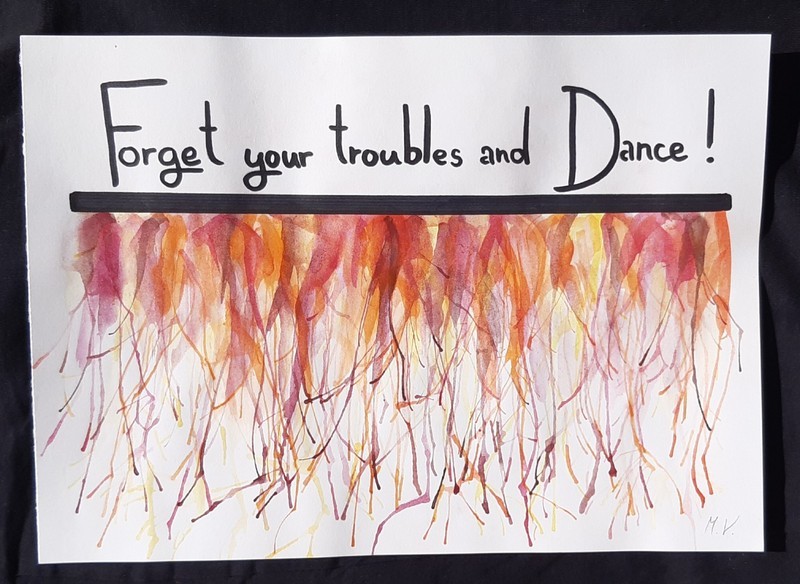 Forget your troubles and Dance !
M.V.